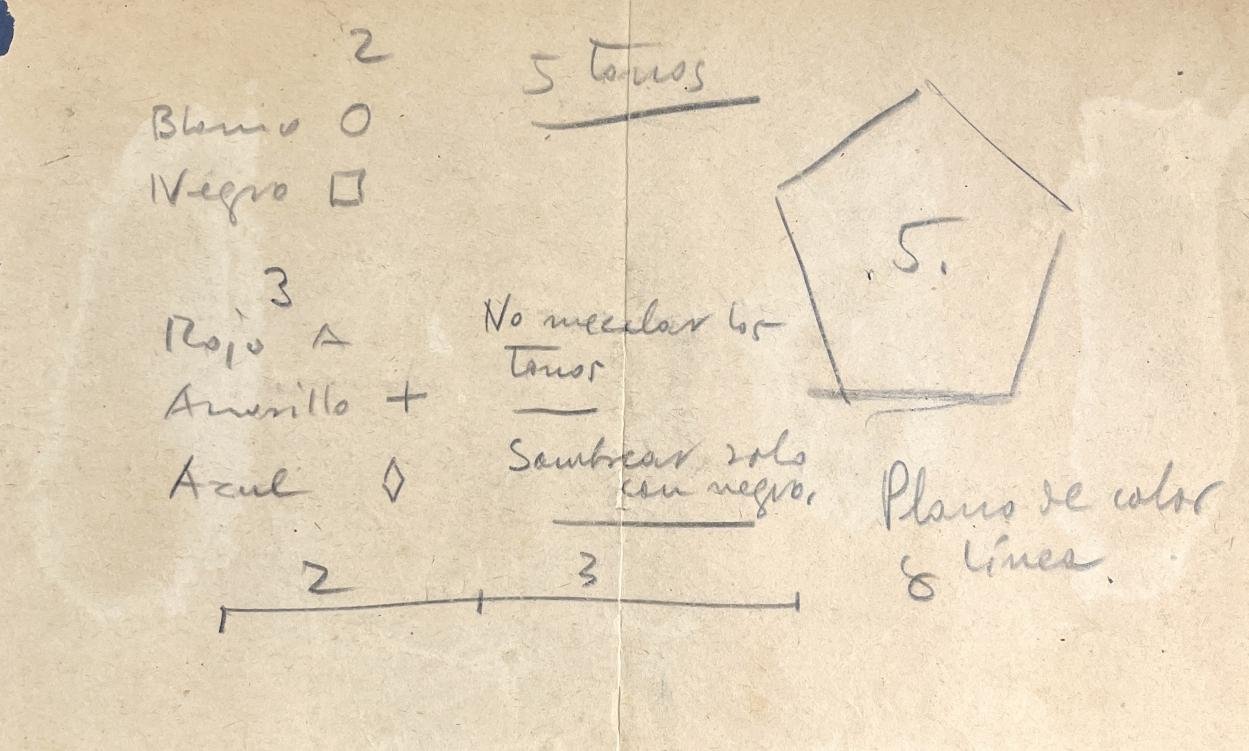 2
Blanco O
Negro □
5 tonos
5.
3
Rojo △
Amarillo +
Azul ◊
No mezclar los
tonos
Sombrear solo
con negro.
Plano de color
y línea
2 3